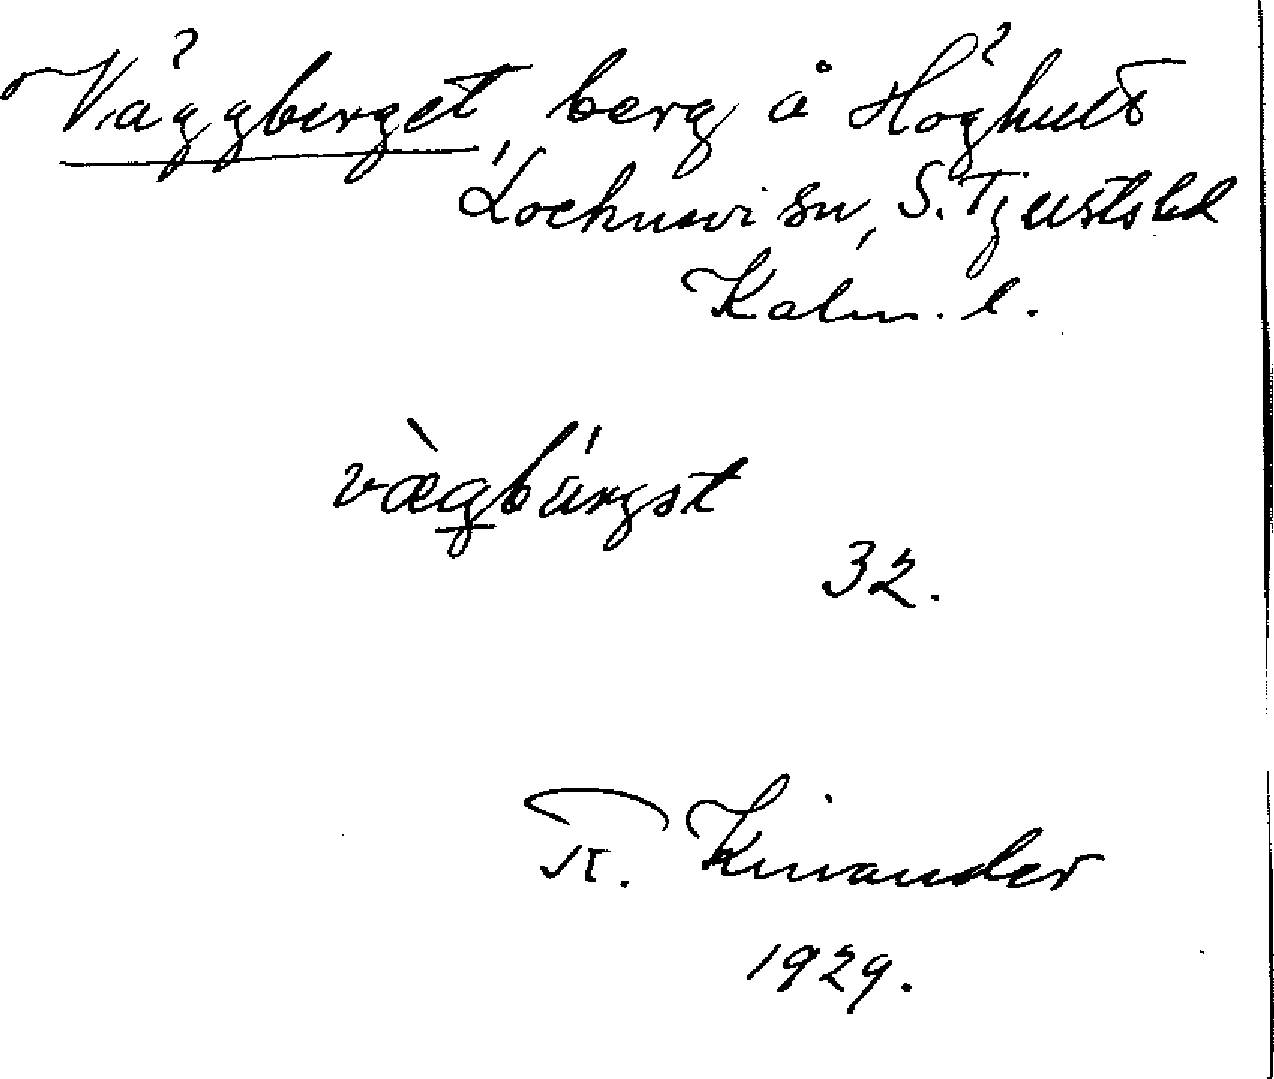 Väggberget, berg å Höghult
Locknevi sn, S. Tjusts hd
Kalm. l.
vægbärgət
32.
Kinander
1929.